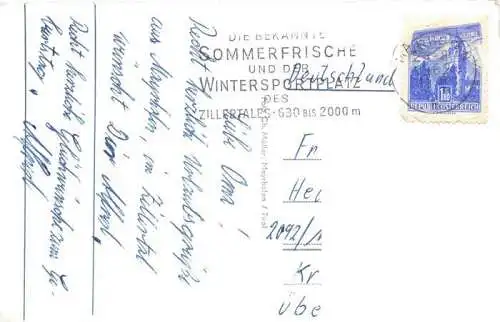 DIE BEKANNTE
SOMMERFRISCHE
UND DER
WINTERSPORTPLATZ
DES
ZILLERTALES - 630 BIS 2000 m
Deutschland
REPUBLIK ÖSTERREICH
Liebe Oma!
Recht herzlich Urlaubsgrüße
aus Mayrhofen, im Zillertal
wünscht Dir Alfred
Recht herzliche Glückwünsche zum Ge-
burtstag, Alfred
Müller, Mayrhofen / Tirol
Fr
He
2092/
Kr
übe